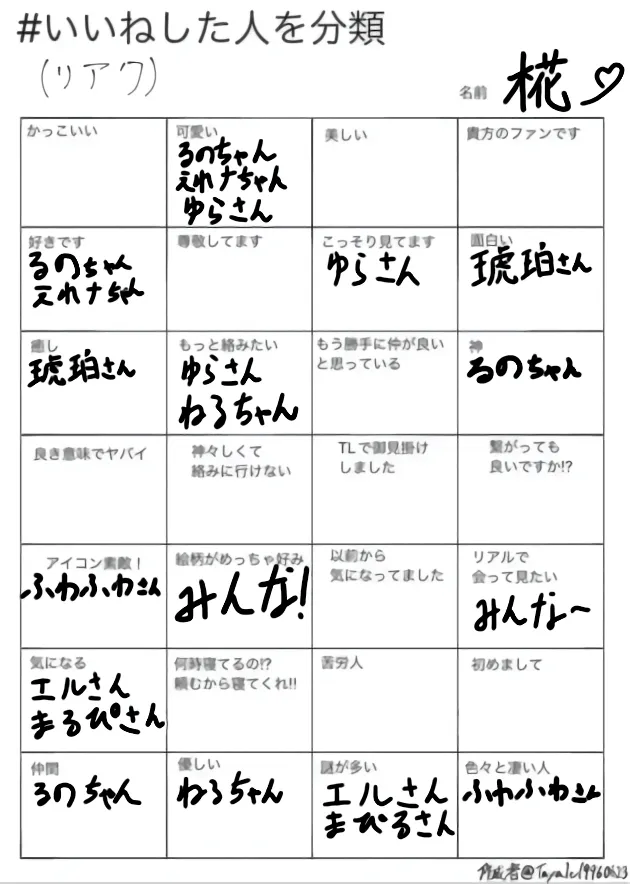 #いいねした人を分類
(リアク)
名前 椛♡
かっこいい
可愛い
るのちゃん
えれナちゃん
ゆらさん
美しい
貴方のファンです
好きです
るのちゃん
えれナちゃん
尊敬してます
こっそり見てます
ゆらさん
面白い
琥珀さん
癒し
琥珀さん
もっと絡みたい
ゆらさん
ねるちゃん
もう勝手に仲が良い
と思っている
神
るのちゃん
良き意味でヤバイ
神々しくて
絡みに行けない
TLで御見掛け
しました
繋がっても
良いですか!?
アイコン素敵!
ふわふわさん
絵柄がめっちゃ好み
みんな!
以前から
気になってました
リアルで
会って見たい
みんな~
気になる
エルさん
まるぴさん
何時寝てるの!?
頼むから寝てくれ!!
苦労人
初めまして
仲間
るのちゃん
優しい
ねるちゃん
謎が多い
エルさん
まぴるさん
色々と凄い人
ふわふわさん
作成者